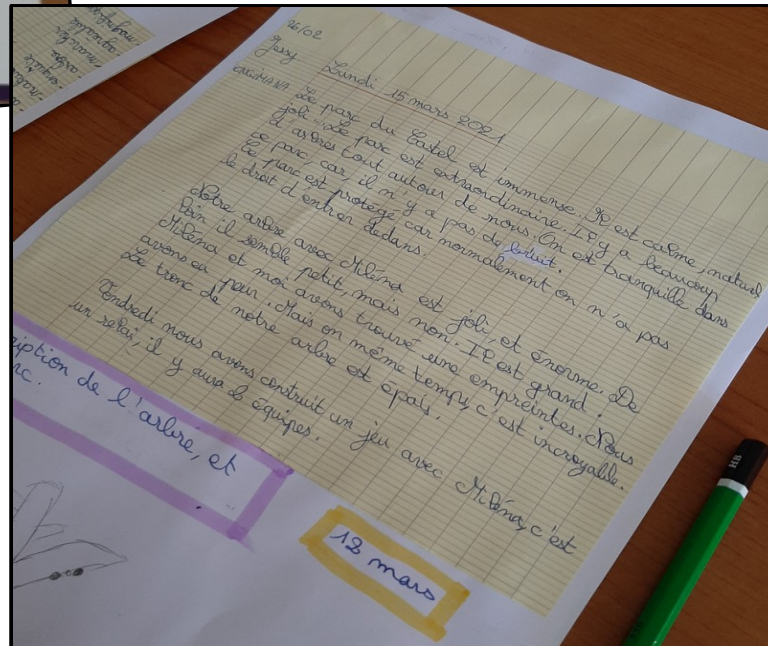 26/02
Jessy
Lundi 15 mars 2021
Le parc du Castel est immense. Il est calme, naturel
joli... Le parc est extraordinaire. Il y a beaucoup
d'arbres tout autour de nous. On est tranquille dans
ce parc, car il n'y a pas de bruit.
Le parc est protégé car normalement on n'a pas
le droit d'entrer dedans.
Notre arbre avec Miléna est joli, et énorme. De
loin il semble petit, mais non. Il est grand.
Miléna et moi avons trouvé une empreintes. Nous
avons eu peur. Mais en même temps, c'est incroyable.
Le tronc de notre arbre est épais.
Vendredi nous avons construit un jeu avec Miléna, c'est
un relai, il y aura 2 équipes.
iption de l'arbre, et
rc.
12 mars
HB